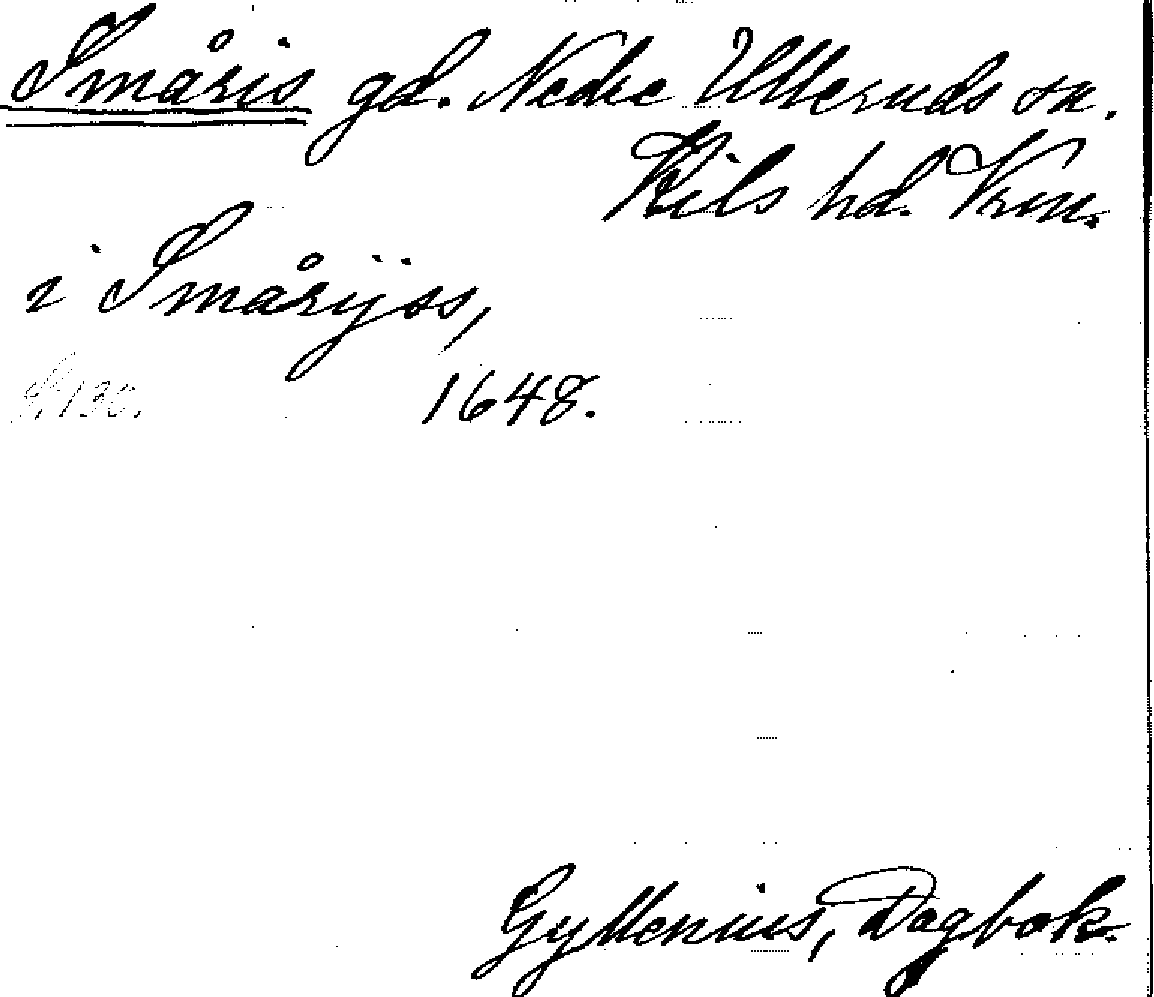 Småris gd. Nedre Ulleruds sn.
Kils hd. Vrm.
i Smårijss,
S. 130. 1648.
Gyllenius, Dagbok.